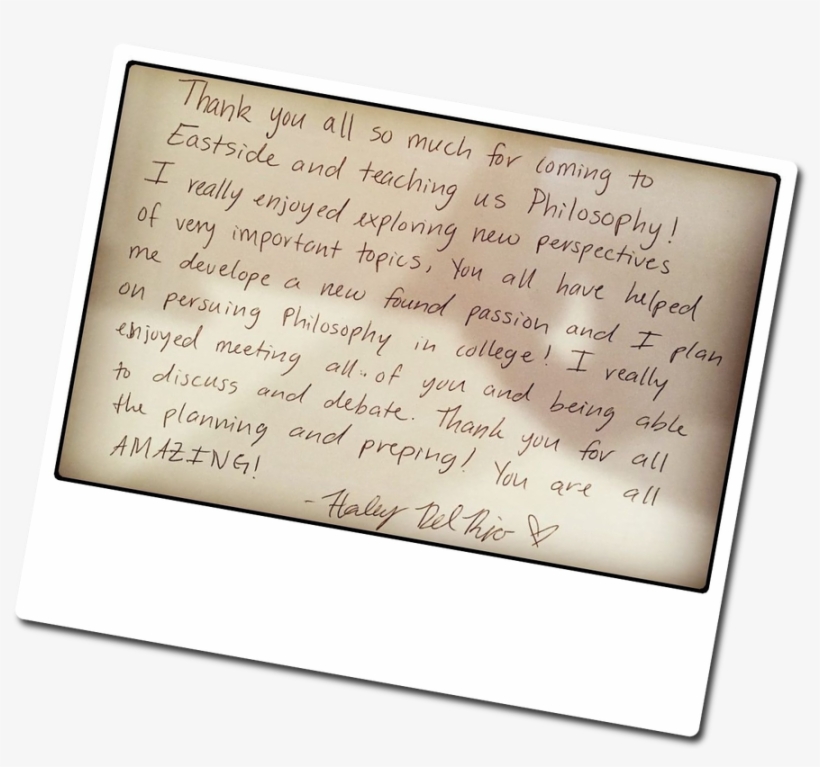 Thank you all so much for coming to
Eastside and teaching us Philosophy!
I really enjoyed exploring new perspectives
of very important topics, You all have helped
me develope a new found passion and I plan
on persuing Philosophy in college! I really
enjoyed meeting all of you and being able
to discuss and debate. Thank you for all
the planning and preping! You are all
AMAZING!
- Haley Del Rio ♡